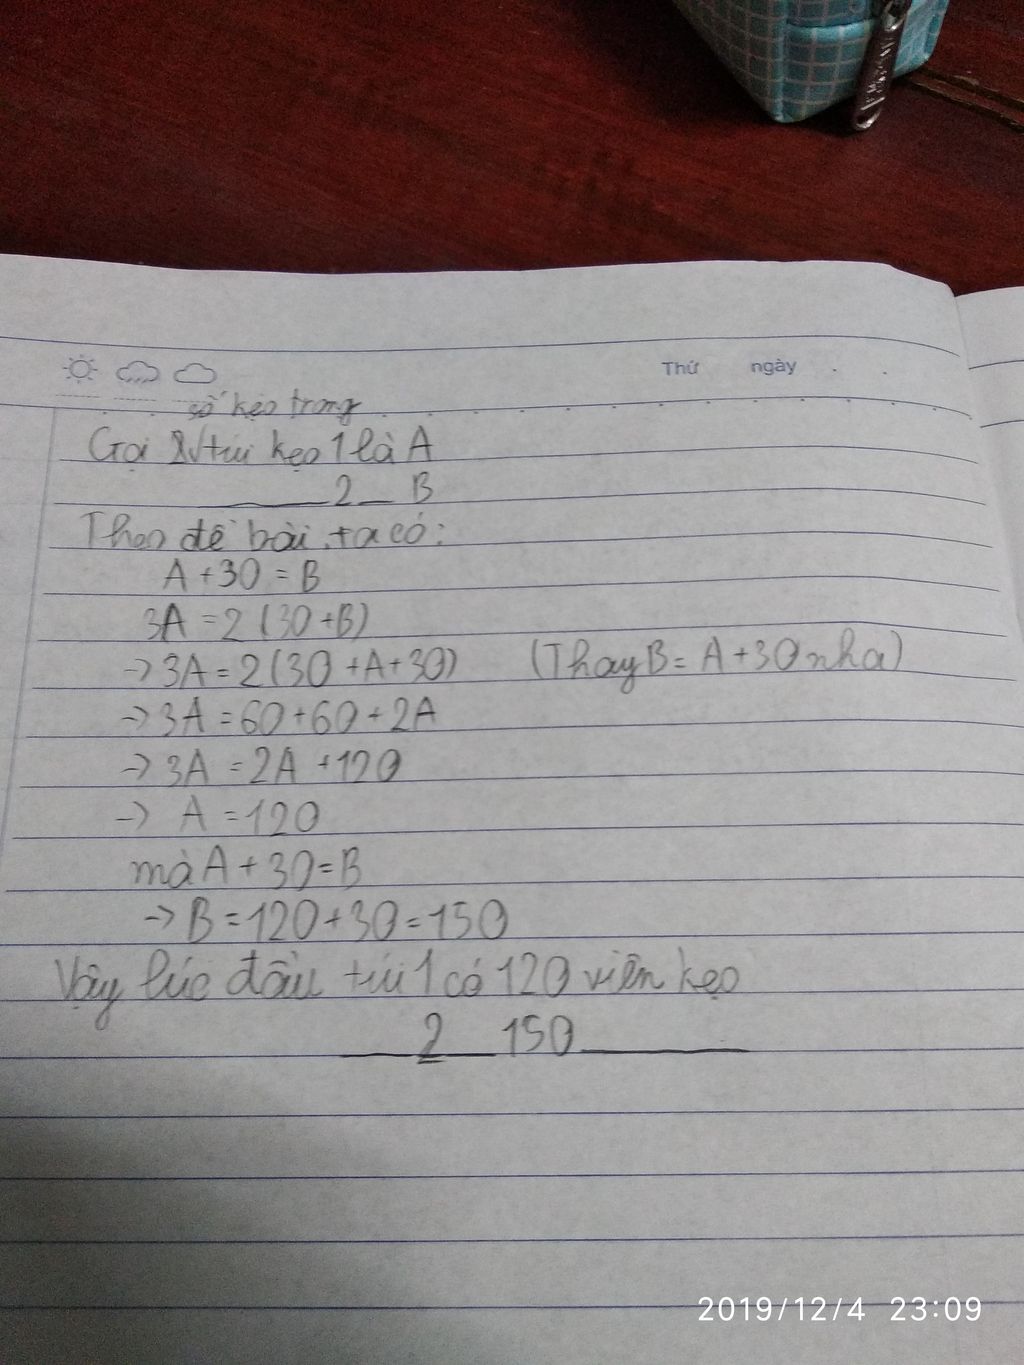 Thứ ngày
số kẹo trong
Gọi túi kẹo 1 là A
2 B
Theo đề bài, ta có:
A + 30 = B
3A = 2 (30 + B)
-> 3A = 2(30 + A + 30) (Thay B = A + 30 nha)
-> 3A = 60 + 60 + 2A
-> 3A = 2A + 120
-> A = 120
mà A + 30 = B
-> B = 120 + 30 = 150
Vậy lúc đầu túi 1 có 120 viên kẹo
2 150
2019/12/4 23:09